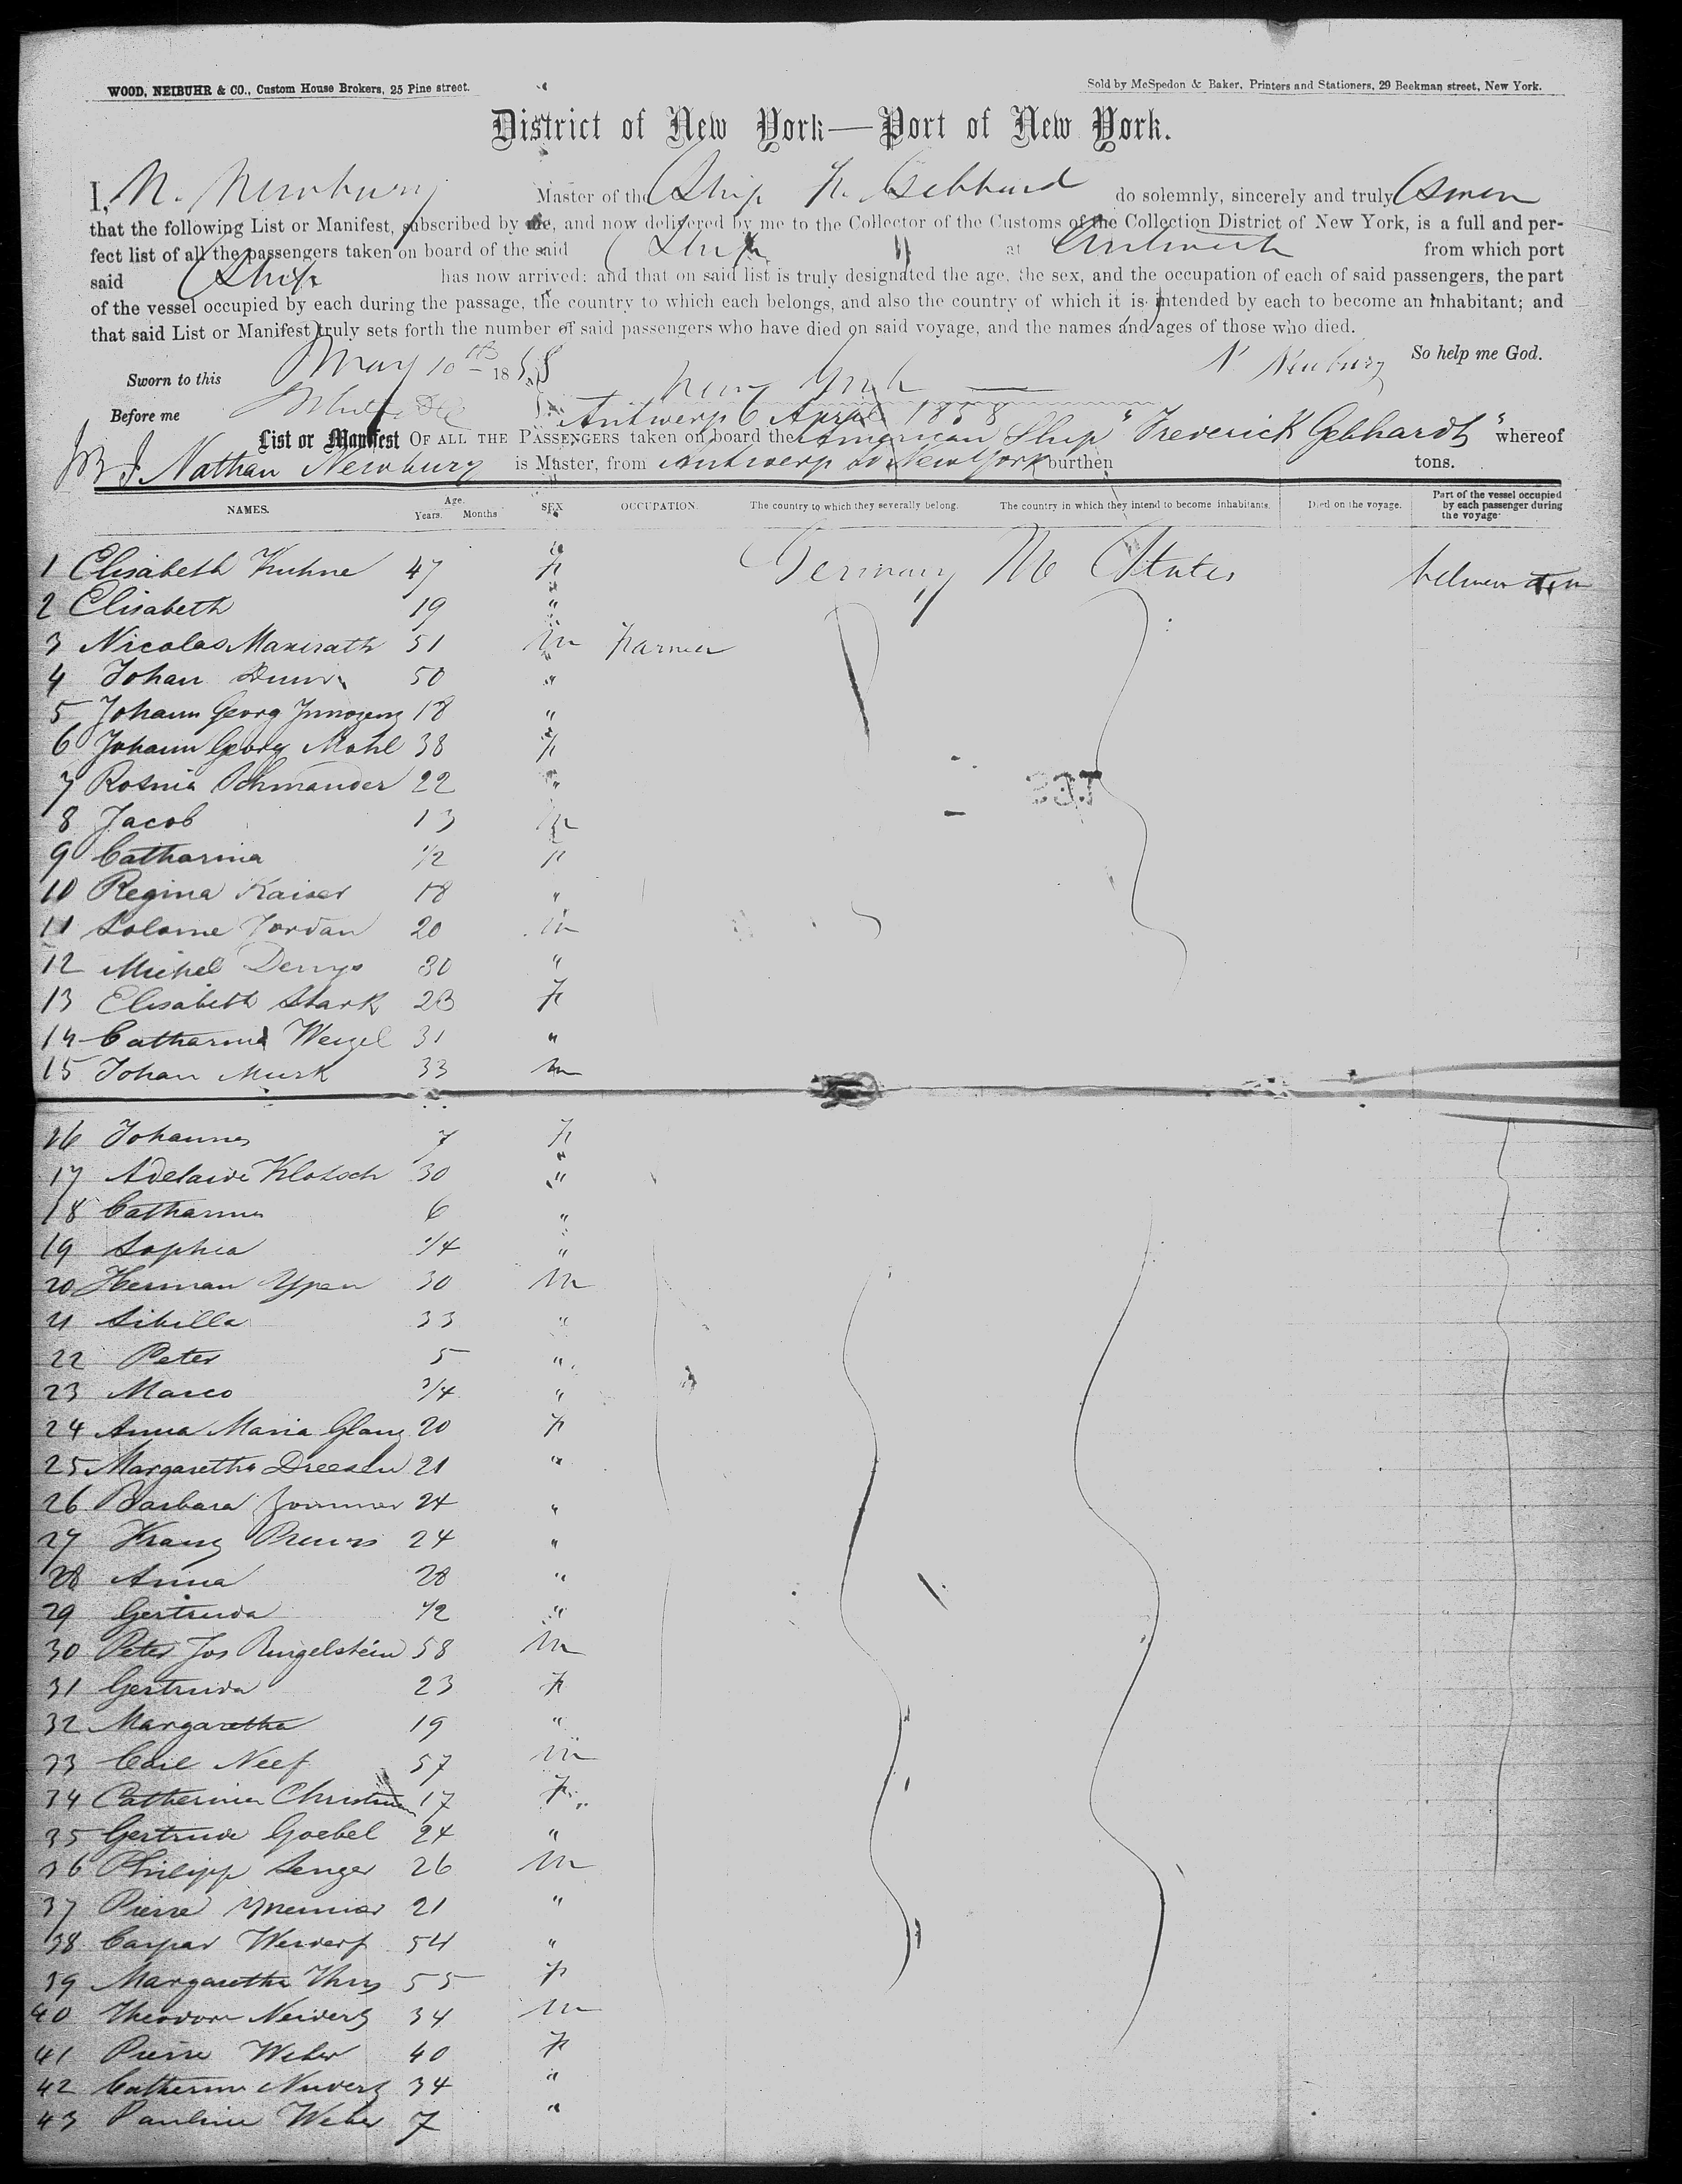 WOOD, NEIBUHR & CO., Custom House Brokers, 25 Pine street.
Sold by McSpedon & Baker, Printers and Stationers, 29 Beekman street, New York.
District of New York—Port of New York.
I, N. Newbury Master of the Ship F. Gebhard do solemnly, sincerely and truly Swear
that the following List or Manifest, subscribed by me, and now delivered by me to the Collector of the Customs of the Collection District of New York, is a full and per-
fect list of all the passengers taken on board of the said Ship at Antwerp from which port
said Ship has now arrived: and that on said list is truly designated the age, the sex, and the occupation of each of said passengers, the part
of the vessel occupied by each during the passage, the country to which each belongs, and also the country of which it is intended by each to become an inhabitant; and
that said List or Manifest truly sets forth the number of said passengers who have died on said voyage, and the names and ages of those who died.
So help me God.
Sworn to this May 10th 1858 N Newbury
New York
Before me
Antwerp 6 April 1858
List or Manifest OF ALL THE PASSENGERS taken on board the American Ship "Frederick Gebhardt" whereof
Nathan Newbury is Master, from Antwerp to New York burthen tons.
NAMES. Age. Years. Months SEX OCCUPATION. The country to which they severally belong. The country in which they intend to become inhabitants. Died on the voyage. Part of the vessel occupied by each passenger during the voyage
1 Elisabeth Kuhne 47 F Germany States between
2 Elisabeth 19 "
3 Nicolas 51 M Farmer
4 Johan 50 "
5 Johann Georg 18 "
6 Johann Georg Mohl 38 F
7 Rosina Schmander 22 "
8 Jacob 13 M
9 Catharina 1/2 F
10 Regina Kaiser 18 "
11 Salome Jordan 20 M
12 Michel 30 "
13 Elisabeth Stark 23 F
14 Catharina Weigel 31 "
15 Johan Murk 33 M
16 Johannes 7 F
17 Adelaide Klotsch 30 "
18 Catharina 6 "
19 Sophia 1/4 "
20 Herman Ypen 30 M
21 Sibilla 33 "
22 Peter 5 "
23 Marco 3/4 "
24 Anna Maria Glanz 20 F
25 Margaretha Dreesen 21 "
26 Barbara 24 "
27 Franz 24 "
28 Anna 28 "
29 Gertruda 1/2 "
30 Peter Jos Ringelstein 58 M
31 Gertruda 23 F
32 Margaretha 19 "
33 Carl Neef 57 M
34 Catherina 17 F
35 Gertrude Goebel 24 "
36 Philipp Senger 26 M
37 Pierre 21 "
38 Caspar 54 "
39 Margaretha 55 F
40 Theodore 34 M
41 Pierre Weber 40 F
42 34 "
43 Pauline Weber 7 "